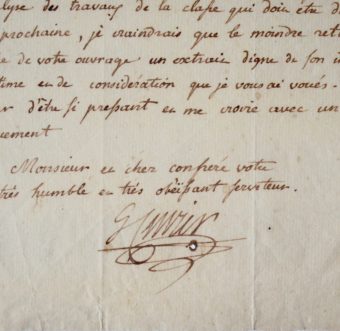 lyse des travaux de la classe qui doit être d
prochaine, je craindrais que le moindre ret
de votre ouvrage un extrait digne de son i
time et de considération que je vous ai voués.
r d'être si pressant et me croire avec un
uement
Monsieur et cher confrere votre
très humble et très obéissant serviteur.
G Cuvier